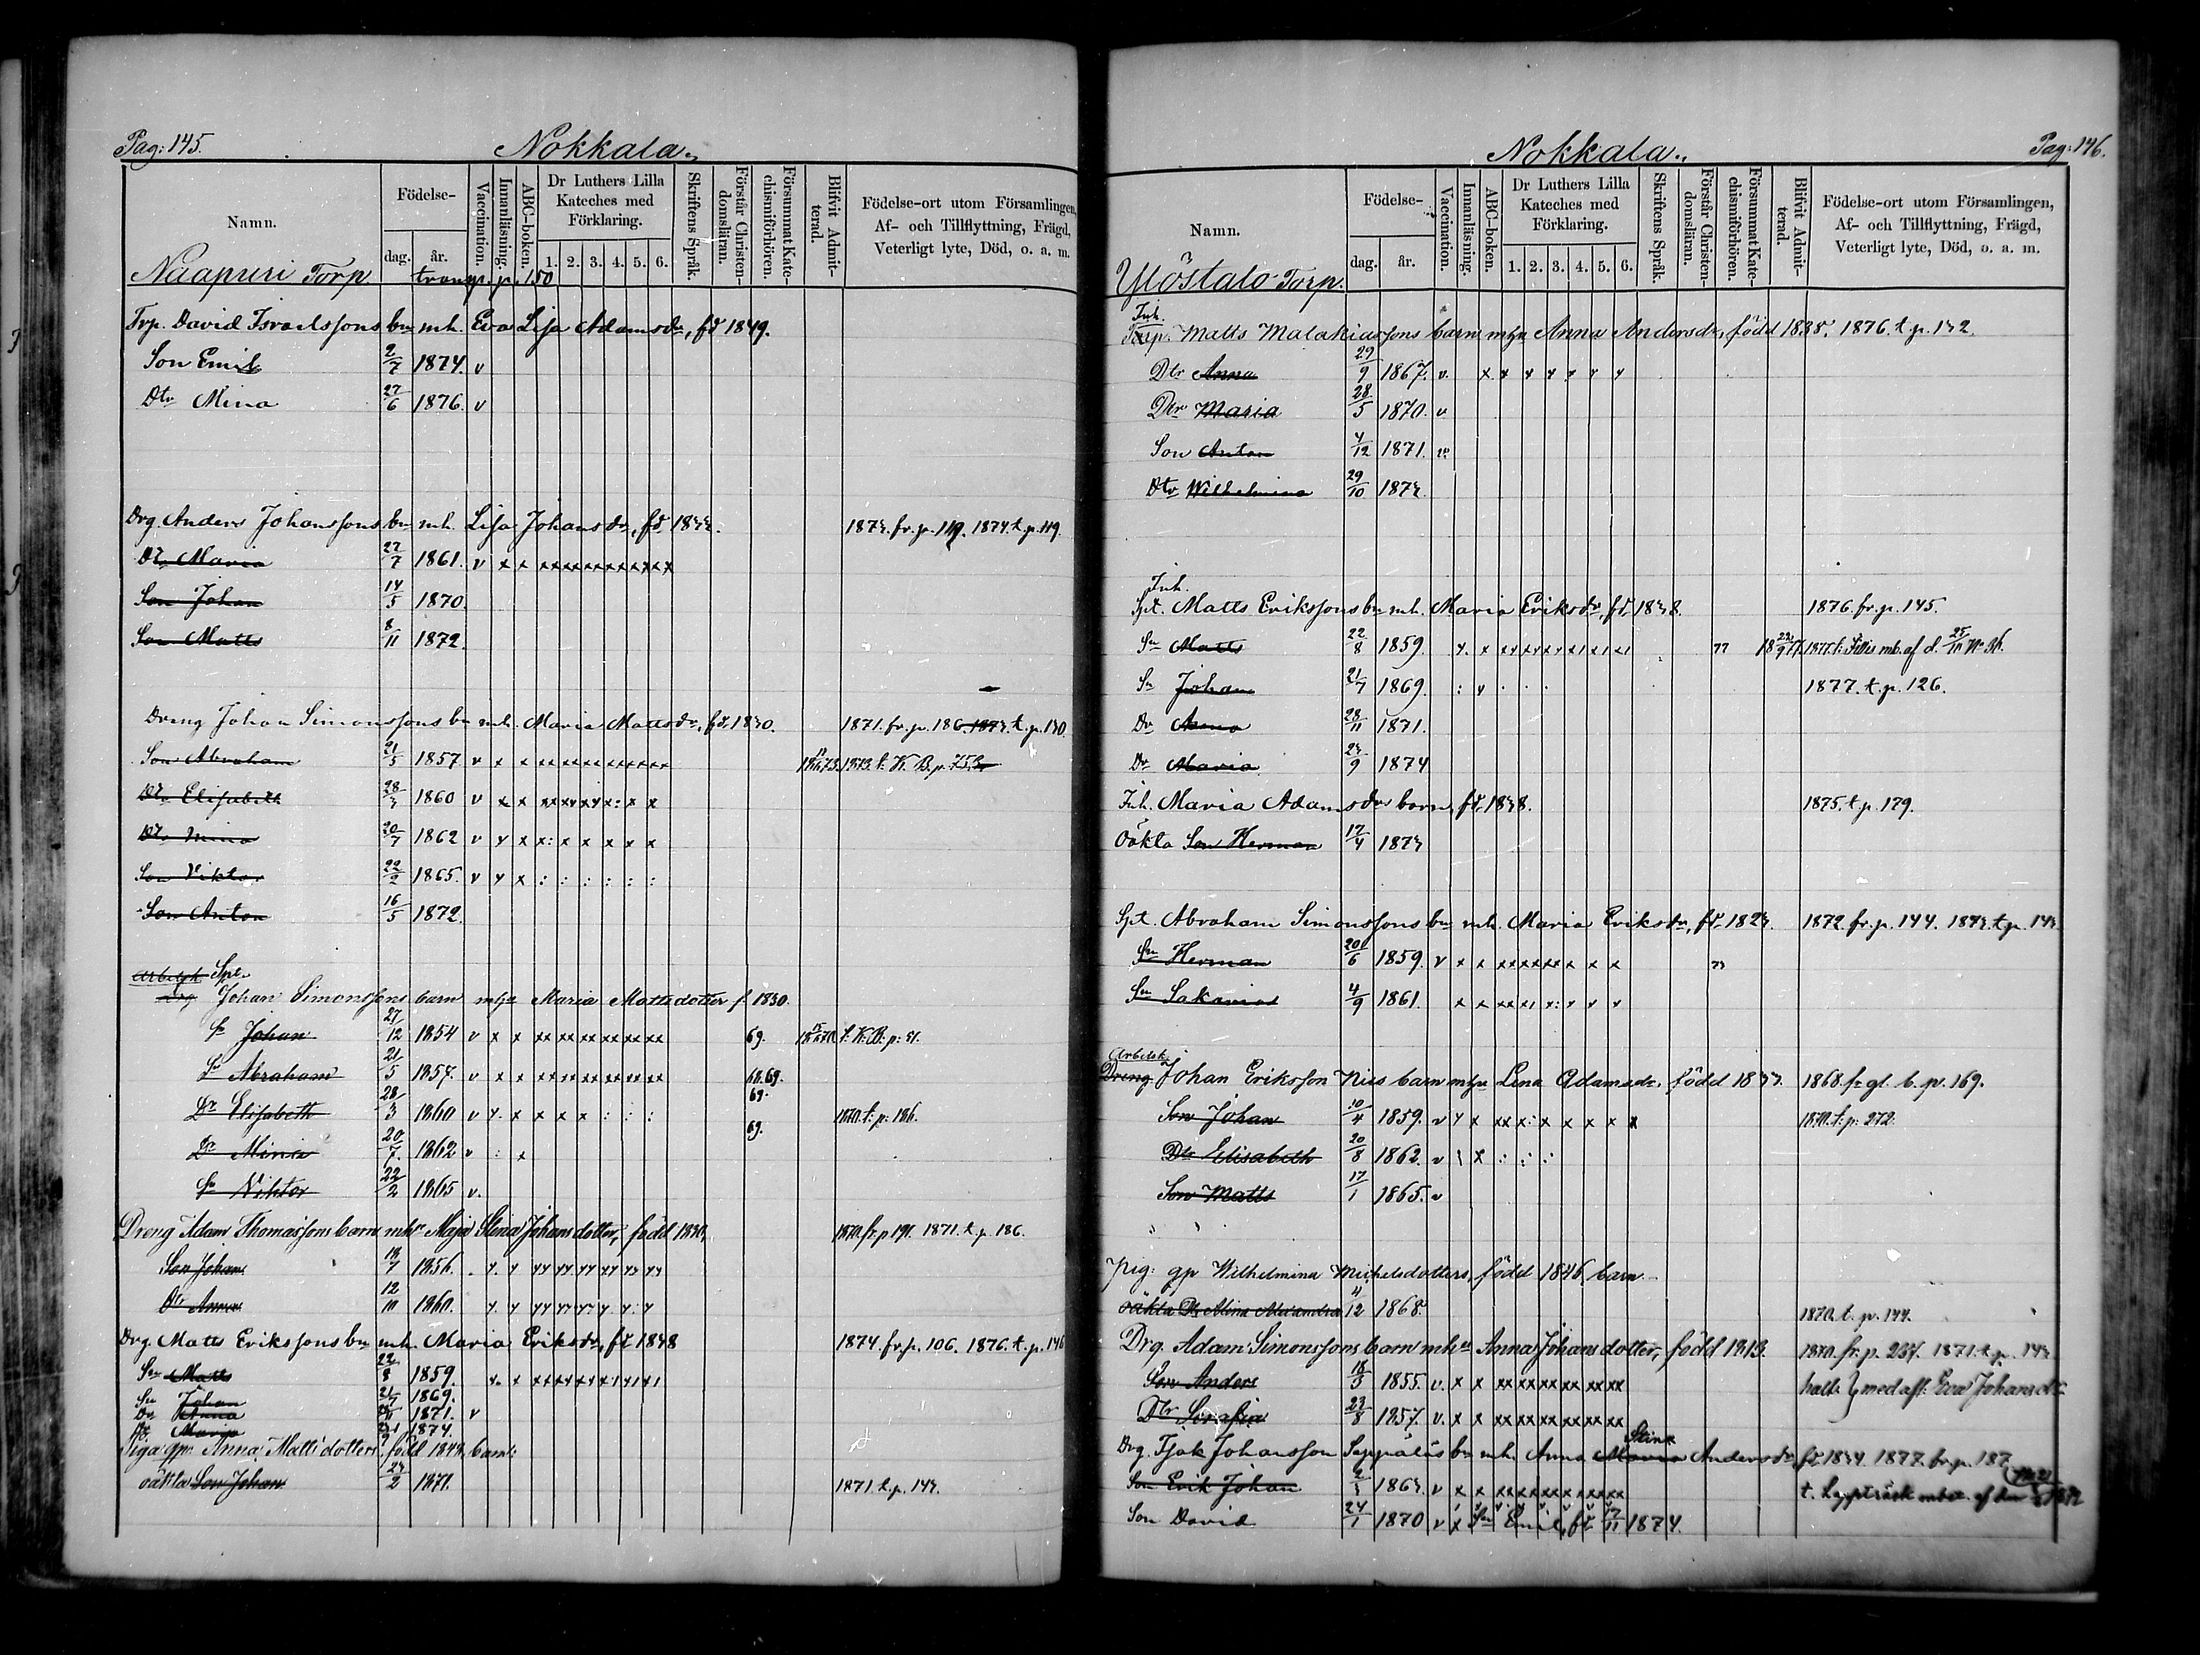 Pag: 145.
Nokkala.
Namn.
Födelse-
dag.
år.
Vaccination.
Innanläsning.
ABC-boken.
Dr Luthers Lilla Kateches med Förklaring.
1. 2. 3. 4. 5. 6.
Skriftens Språk.
Förstår Christendomsläran.
Försummat Katechismiförhören.
Blifvit Admitterad.
Födelse-ort utom Församlingen, Af- och Tillflyttning, Frägd, Veterligt lyte, Död, o. a. m.
Naapuri Torp. transp. p. 150
Trp. David Israelssons bn mh. Eva Lisa Adamsdr, fd 1849.
Son Emil 2/7 1874. v
Dtr Mina 27/6 1876. v
Drg Anders Johanssons bn mh. Lisa Johansdr, fd. 1833. 1873. fr. p. 119. 1874. t. p. 119.
Dr Maria 27/7 1861. v x x xx xx xx xx xx xx
Son Johan 14/5 1870.
Son Matts 8/11 1872.
Dreng Johan Simonssons bn mh. Maria Mattsdr, fd. 1830. 1871. fr. p. 186. 1873. t. p. 130.
Son Abraham 21/5 1857 v x x xx xx xx xx xx xx 1873. t. K. B. p. 75.
Dr Elisabeth 28/3 1860 v x x xx xx xy x: x x
Dr Mina 20/7 1862 v y x x: x x x x x
Son Viktor 22/2 1865. v y x : : : : : :
Son Anton 16/5 1872.
Arbetsk Spt.
Drg Johan Simonssons barn mhu Maria Mattsdotter f 1830.
Sn Johan 27/12 1854 v x x xx xx xx xx xx xx 69. t. K. B. p: 51.
Sn Abraham 21/5 1857. v x x xx xx xx xx xx xx 68. 69.
Dr Elisabeth 28/3 1860 v y. x x x x : : : 69. 1870. t: p. 186.
Dr Mina 20/7. 1862 v : x 69.
Sn Viktor 22/2 1865 v.
Dreng Adam Thomassons barn mhr Maja Stina Johansdotter, född 1830, 1870. fr. p 191. 1871. t. p. 186.
Son Johan 18/7 1856. y. y yy yy yy yy yy yy
Dtr Anna 12/10 1860. y. y yy yy yy y. y. y
Drg. Matts Erikssons bn mh. Maria Eriksdr, fd 1838 1874. fr. p. 106. 1876. t. p. 146
Sn Matts 22/8 1859.
Sn Johan 21/7 1869.
Dr Anna 1871. v
Dr. Maria 1874.
Piga gp. Anna Mattsdotters, född 1843, barn:
oäkta Son Johan 23/2 1871. 1871. t. p. 143.
Pag: 146.
Nokkala.
Namn.
Födelse-
dag.
år.
Vaccination.
Innanläsning.
ABC-boken.
Dr Luthers Lilla Kateches med Förklaring.
1. 2. 3. 4. 5. 6.
Skriftens Språk.
Förstår Christendomsläran.
Försummat Katechismiförhören.
Blifvit Admitterad.
Födelse-ort utom Församlingen, Af- och Tillflyttning, Frägd, Veterligt lyte, Död, o. a. m.
Ylöstalo Torp.
Inh.
Torp. Matts Malakiassons barn mhu Anna Andersdr, född 1838. 1876. t. p. 132.
Dtr Anna 29/9 1867. v. x x y y y y y
Dtr Maria 28/5 1870. v
Son Anton 4/12 1871. v
Dtr Wilhelmina 29/10 1873.
Inh.
Spt. Matts Erikssons bn mh. Maria Eriksdr, fd. 1838. 1876. fr. p. 145.
Sn Matts 22/8 1859. 77 1877. t: mb. af d.
Sn Johan 21/7 1869. : y . . . 1877. t. p. 126.
Dr Anna 28/11 1871.
Dr Maria 23/9 1874
Inh. Maria Adamsdrs barn, fd. 1838. 1875. t. p. 179.
Oäkta Son Herman 17/4 1873
Spt. Abraham Simonssons bn mh. Maria Eriksdr, fd. 1823. 1872. fr. p. 144. 1873. t. p. 143.
Sn Herman 20/6 1859. v x x xx xx xx x x x 73
Sn Sakarias 4/9 1861. x x xx x1 x: x y y
Arbetsk
Dreng Johan Eriksson Nies barn mhu Lena Adamsdr. född 1833. 1868. fr gl. b. p. 169.
Son Johan 10/4 1859. v y x xx x: x x x x x 1870. t. p: 272.
Dtr Elisabeth 20/8 1862. v
Son Matts 17/1 1865. v
Pig: gp Wilhelmina Michelsdotters, född 1846 barn.
oäkta Dr Alina Alexandra 4/12 1868. 1870. t. p. 144.
Drg. Adam Simonssons barn mhu Anna Johansdotter, född 1813. 1870. fr. p. 237. 1871. t. p. 143
Son Anders 18/3 1855. v. x x xx xx xx xx xx xx med afl: Eva Johansdr
Dtr Serafia 23/8 1857. v. x x xx xx xx xx xx xx
Stina
Drg. Isak Johansson Seppäläs bn mh. Anna Maria Andersdr, fd. 1834. 1877. fr. p. 187
Son Erik Johan 1863. v x x xx xx xx xx xx xx
Son David 24/1 1870 v x Sn Emil, fd. 17/11 1874.